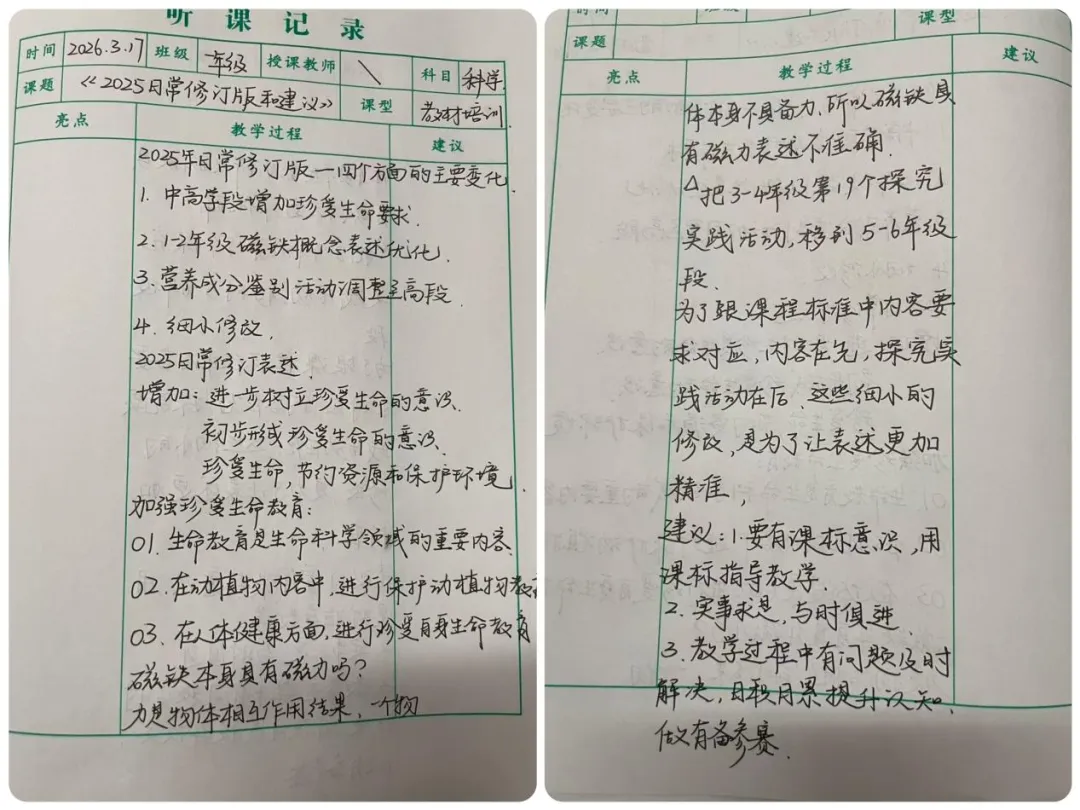 听课记录
时间 2026.3.17 班级 一年级 授课教师 \ 科目 科学
课题 《2025日常修订版和建议》 课型 教材培训
亮点 教学过程 建议
2025年日常修订版一四个方面的主要变化
1. 中高学段增加珍爱生命要求.
2. 1-2年级磁铁概念表述优化.
3. 营养成分鉴别活动调整至高段.
4. 细小修改.
2025日常修订表述.
增加: 进一步树立珍爱生命的意识.
初步形成珍爱生命的意识.
珍爱生命, 节约资源和保护环境.
加强珍爱生命教育:
01. 生命教育是生命科学领域的重要内容.
02. 在动植物内容中, 进行保护动植物教
03. 在人体健康方面, 进行珍爱自身生命教育
磁铁本身具有磁力吗?
力是物体相互作用结果, 一个物
时间 课型
课题
亮点 教学过程 建议
体本身不具备力, 所以磁铁具
有磁力表述不准确.
△把3-4年级第19个探究
实践活动, 移到5-6年级
段.
为了跟课程标准中内容要
求对应, 内容在先, 探究实
践活动在后、这些细小的
修改, 是为了让表述更加
精准,
建议: 1. 要有课标意识, 用
课标指导教学.
2. 实事求是, 与时俱进.
3. 教学过程中有问题及时
解决, 日积月累提升认知.
做有备参赛.